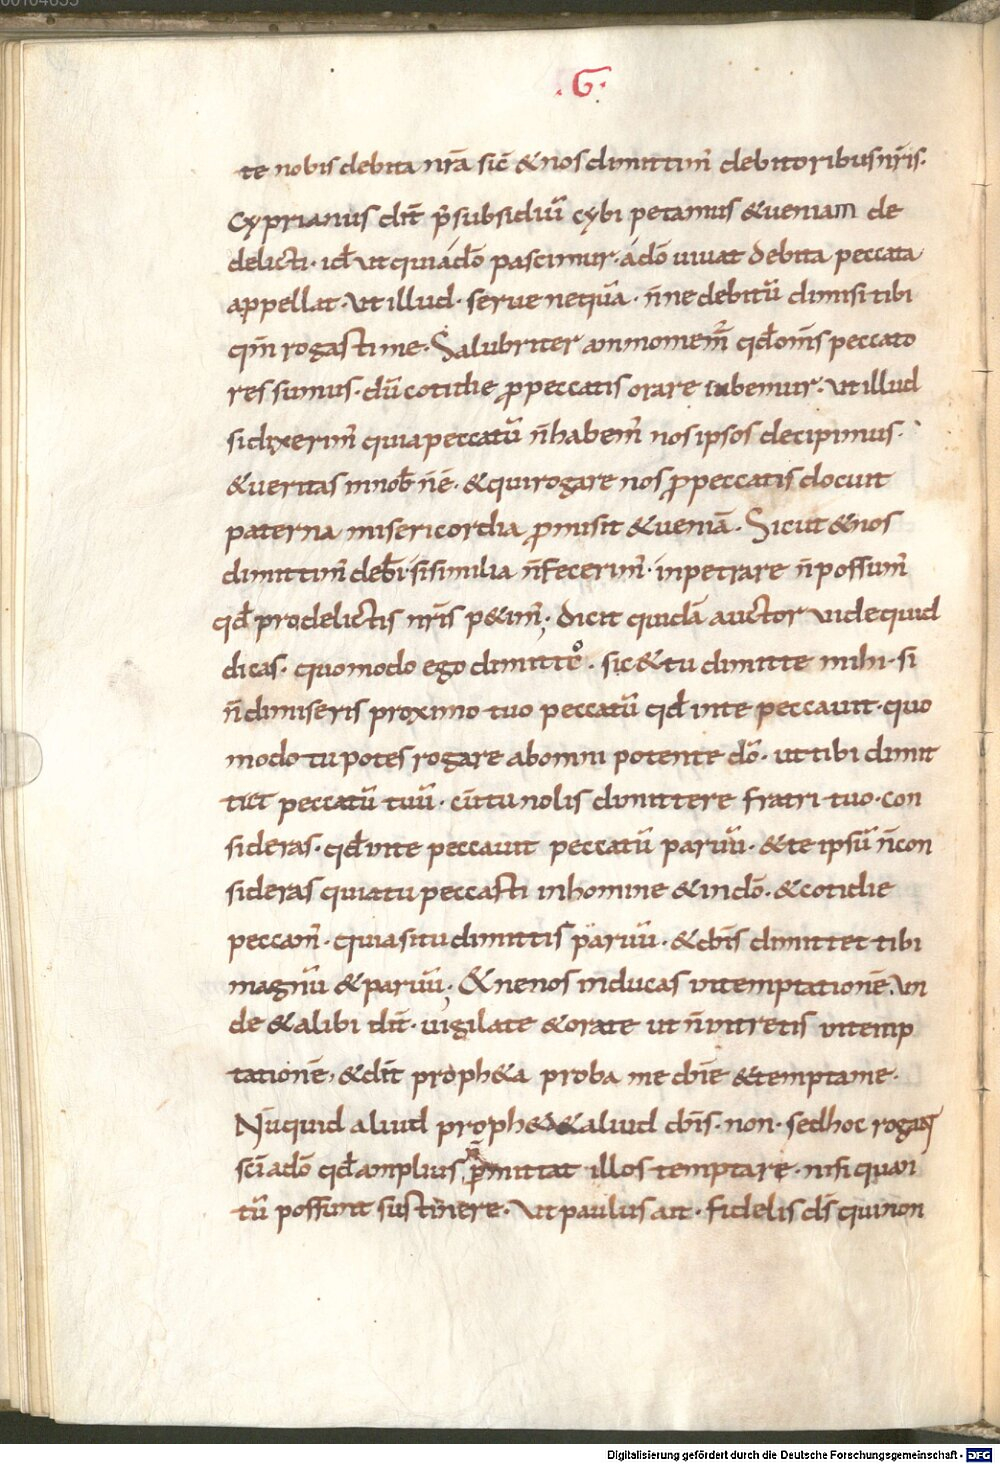 00104633
.G.
te nobis debita nrā sic̄ & nos dimittim̄ debitoribus nr̄is.
Cyprianus dit̄ p̄ subsidiū cybi petamus & ueniam de
delicti. id ut qui ádō pascimur. ádō uiuat debita peccata
appellat. Ut illud. serue nequā. n̄ne debitū dimisi tibi
qm̄ rogasti me. Salubriter ammonem̄ qd̄ om̄s peccato
res sumus. dū cotidie ꝓ peccatis orare iubemur. Ut illud
si dixerim̄ quia peccatū n̄ habem̄ nos ipsos decipimus.
& ueritas in nob̄ n̄ ē. & qui rogare nos ꝓ peccatis docuit
paterna misericordia ꝓmisit & ueniā. Sicut & nos
dimittim̄ deb̄i. si similia n̄ fecerim̄. inpetrare n̄ possum̄
qd̄ pro delictis nr̄is p&im̄; dicit quidā auctor uide quid
dicas. quomodo ego dimitto. sic & tu dimitte mihi. si
n̄ dimiseris proximo tuo peccatū qd̄ in te peccauit. quo
modo tu potes rogare ab omni potente dō. ut tibi dimit
tiet peccatū tuū. cū tu nolis dimittere fratri tuo. con
sideras. qd̄ in te peccauit peccatū paruū. & te ipsū n̄ con
sideras quia tu peccasti in homine & in dō. & cotidie
peccam̄. quia si tu dimittis paruū. & dn̄s dimittet tibi
magnū & paruū; & ne nos inducas in temptationē. Un
de & alibi dit̄. uigilate & orate ut n̄ intretis in temp
tationē, & dit̄ proph&a proba me dn̄e & tempta me.
Nūquid aliud proph& & aliud dn̄s. non. sed hoc rogant
sc̄i ádō qd̄ amplius n̄ p̄mittat illos temptare. nisi quan
tū possunt sustinere. Ut paulus ait. fidelis ds̄ qui non
Digitalisierung gefördert durch die Deutsche Forschungsgemeinschaft - DFG